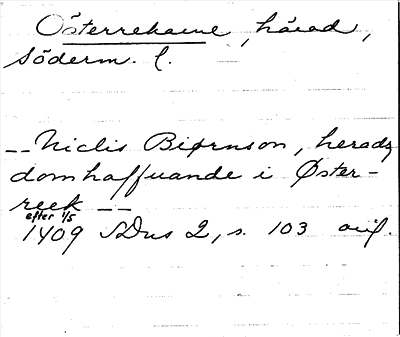 Österrekarne, härad,
Söderm. l.
-- Niclis Biørnson, heradz
domhaffuande i Øster-
reek --
efter 1/5
1409 SDns 2, s. 103 orig.